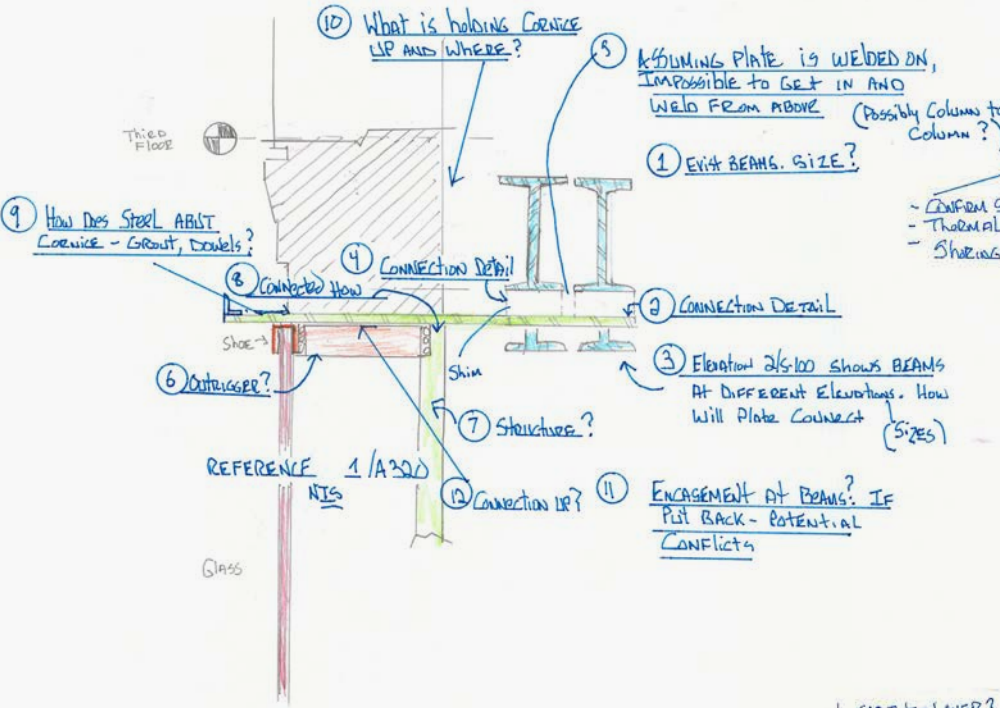 10 What is holding Cornice
up and where?
5 Assuming Plate is welded on,
Impossible to get in and
weld from above (Possibly Column to
Column?)
Third
Floor
1 Exist Beams. Size?
9 How Does Steel Abut
Cornice - Grout, Dowels?
- Confirm S
- Thermal
- Shoring
4 Connection Detail
8 Connected How
2 Connection Detail
Shoe →
Shim
3 Elevation 2/S-100 shows Beams
At Different Elevations. How
Will Plate Connect
(Sizes)
6 Outrigger?
7 Structure?
Reference 1/A320
NTS
12 Connection up?
11 Encasement At Beams? If
Put Back - Potential
Conflicts
Glass